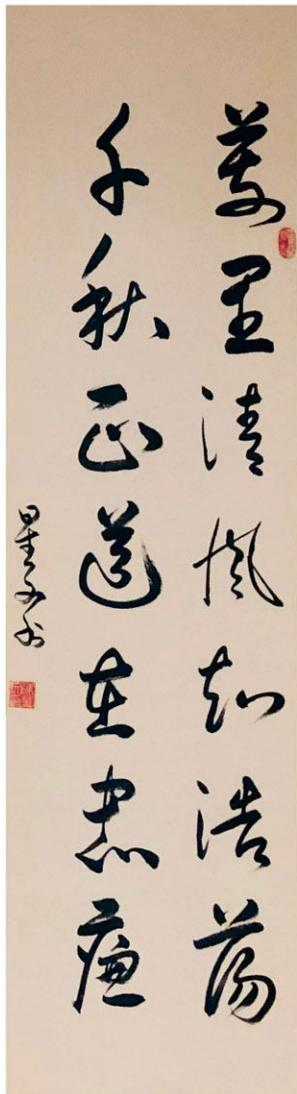 萬里清風知浩蕩
千秋正道在忠廉
星子书